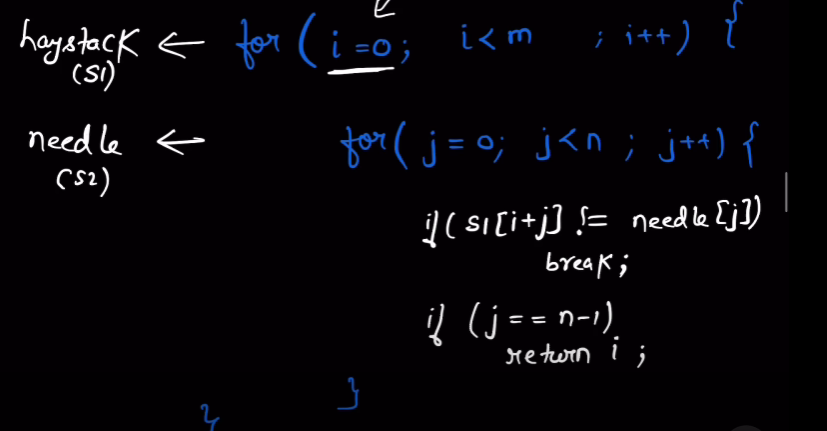 haystack ← for ( i =0; i<m ; i++) {
(S1)
needle ← for( j = 0; j<n ; j++) {
(S2)
if( S1[i+j] != needle[j])
break;
if (j == n-1)
return i ;
}
}